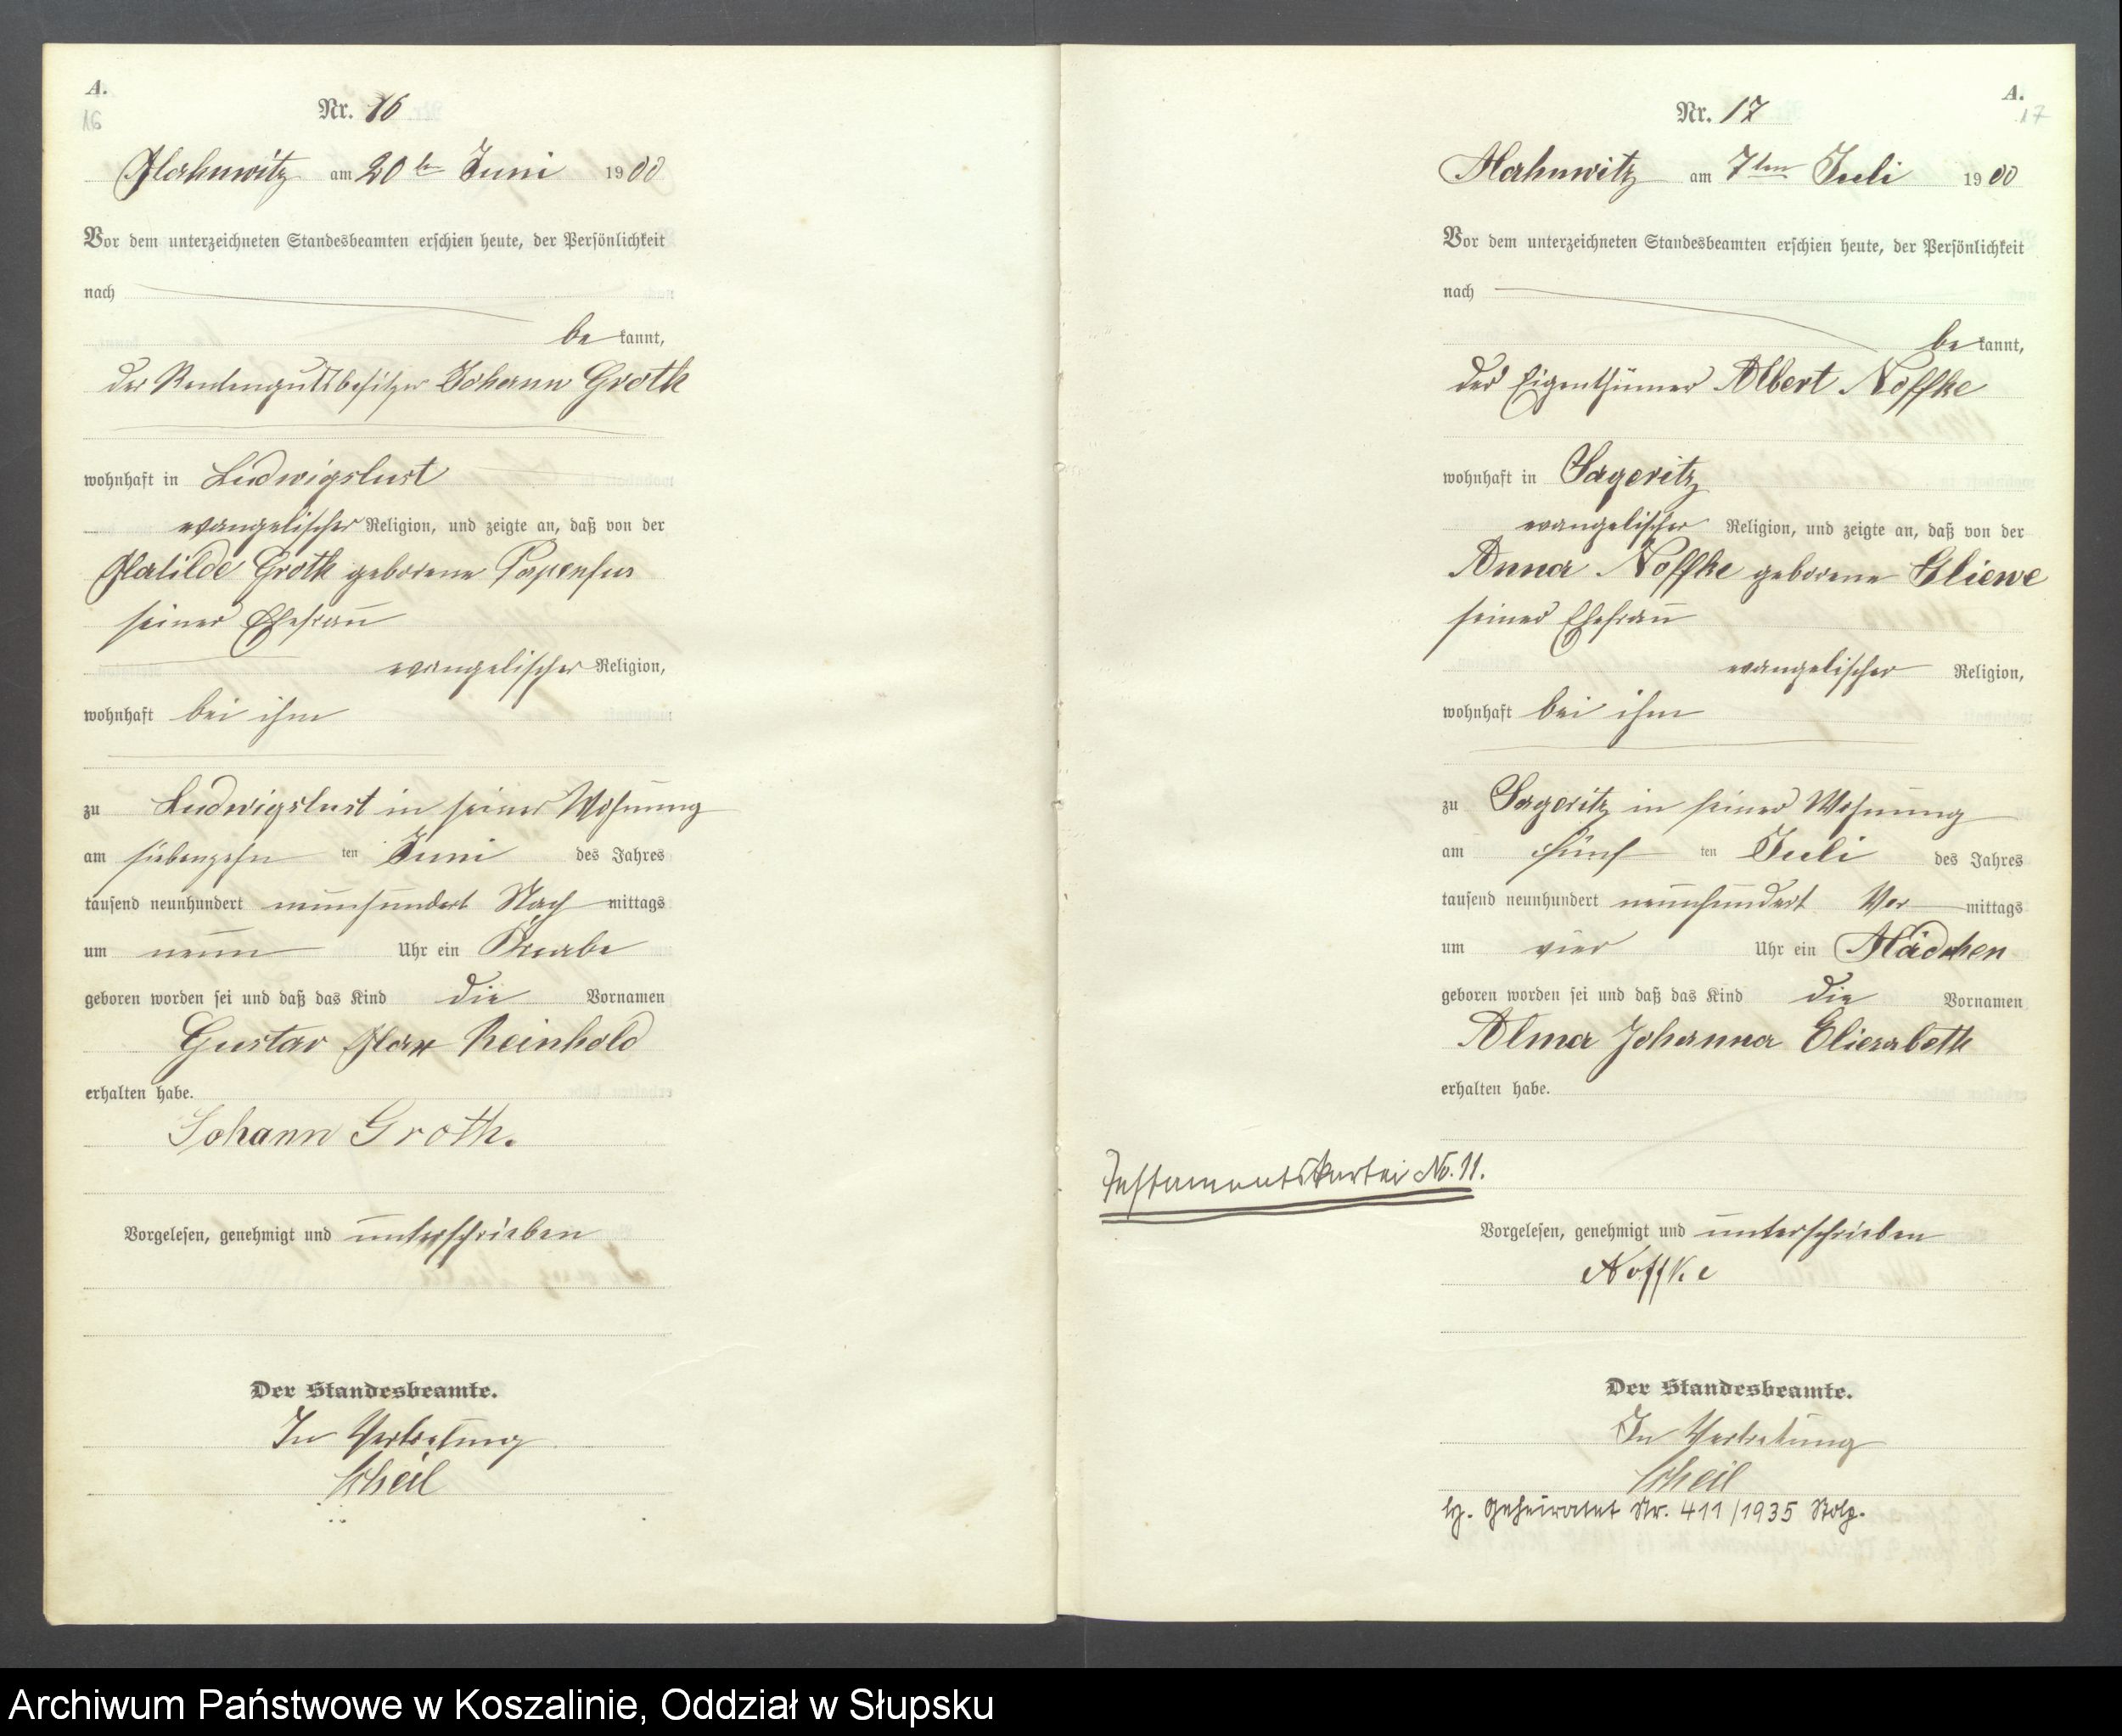 A.
16
Nr. 16
Mahnwitz am 20ten Juni 1900
Vor dem unterzeichneten Standesbeamten erschien heute, der Persönlichkeit
nach
be kannt,
der Rentengutsbesitzer Johann Groth
wohnhaft in Ludwigslust
evangelischer Religion, und zeigte an, daß von der
Matilde Groth geborene Papenfus
seiner Ehefrau
evangelischer Religion,
wohnhaft bei ihm
zu Ludwigslust in seiner Wohnung
am siebenzehn ten Juni des Jahres
tausend neunhundert neunhundert Nach mittags
um neun Uhr ein Knabe
geboren worden sei und daß das Kind die Vornamen
Gustav Max Reinhold
erhalten habe.
Johann Groth.
Vorgelesen, genehmigt und unterschrieben
Der Standesbeamte.
In Vertretung
Scheil
A.
17
Nr. 17
Mahnwitz am 7ten Juli 1900
Vor dem unterzeichneten Standesbeamten erschien heute, der Persönlichkeit
nach
be kannt,
der Eigenthümer Albert Noffke
wohnhaft in Sageritz
evangelischer Religion, und zeigte an, daß von der
Anna Noffke geborene Gliewe
seiner Ehefrau
evangelischer Religion,
wohnhaft bei ihm
zu Sageritz in seiner Wohnung
am fünf ten Juli des Jahres
tausend neunhundert neunhundert Vor mittags
um vier Uhr ein Mädchen
geboren worden sei und daß das Kind die Vornamen
Alma Johanna Eliesabeth
erhalten habe.
Testamentskartei No. 11.
Vorgelesen, genehmigt und unterschrieben
Noffke
Der Standesbeamte.
In Vertretung
Scheil
Geheiratet Nr. 411/1935 Stolp.
Archiwum Państwowe w Koszalinie, Oddział w Słupsku